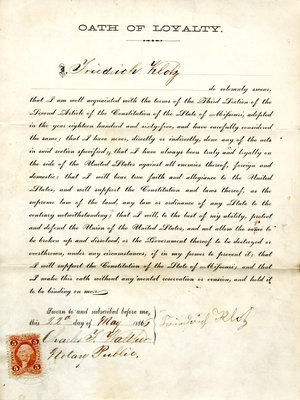 OATH OF LOYALTY.
I, Friedrich Klotz
do solemnly swear,
that I am well acquainted with the terms of the Third Section of the
Second Article of the Constitution of the State of Missouri, adopted
in the year eighteen hundred and sixty-five, and have carefully considered
the same; that I have never, directly or indirectly, done any of the acts
in said section specified; that I have always been truly and loyally on
the side of the United States against all enemies thereof, foreign and
domestic; that I will bear true faith and allegiance to the United
States, and will support the Constitution and laws thereof, as the
supreme law of the land, any law or ordinance of any State to the
contrary notwithstanding; that I will, to the best of my ability, protect
and defend the Union of the United States, and not allow the same to
be broken up and dissolved, or the Government thereof to be destroyed or
overthrown, under any circumstances, if in my power to prevent it; that
I will support the Constitution of the State of Missouri; and that I
make this oath without any mental reservation or evasion, and hold it
to be binding on me.
Sworn to and subscribed before me,
this 22d day of May 186
Friedrich Klotz
Charles F.
Notary Public.